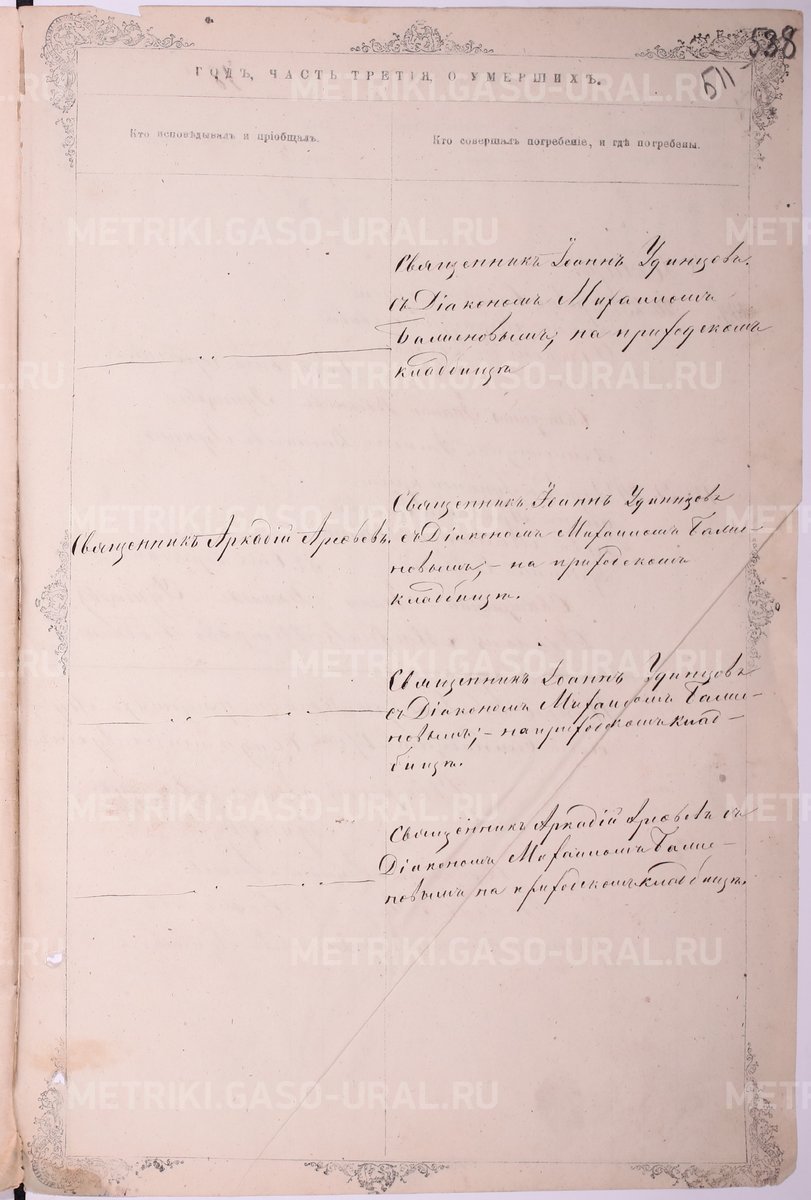 538
511
ГОДЪ, ЧАСТЬ ТРЕТІЯ, О УМЕРШИХЪ.
Кто исповѣдывалъ и пріобщалъ.
Кто совершалъ погребеніе, и гдѣ погребены.
Священникъ Іоаннъ Удинцовъ
съ Діакономъ Михаиломъ
на приходскомъ
кладбищѣ
Священникъ Аркадій
Священникъ Іоаннъ Удинцовъ
съ Діакономъ Михаиломъ
новымъ, – на приходскомъ
кладбищѣ.
Священникъ Іоаннъ Удинцовъ
съ Діакономъ Михаиломъ
новымъ; – на приходскомъ клад–
бищѣ.
Священникъ Аркадій съ
Діакономъ Михаиломъ
новымъ на приходскомъ кладбищѣ.
METRIKI.GASO-URAL.RU